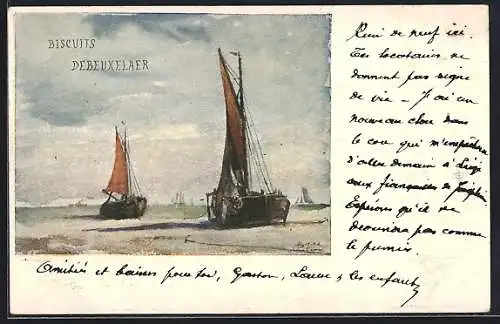 BISCUITS
DEBEUKELAER
Rien de neuf ici.
Tes locataires ne
donnent pas signe
de vie – J'ai un
nouveau clou dans
le cou qui m'empêchera
d'aller demain à Liège
aux fiançailles de Joseph
Espérons qu'il ne
deviendra pas comme
le premier.
Amitiés et baisers pour toi, Gaston, Laure & les enfants